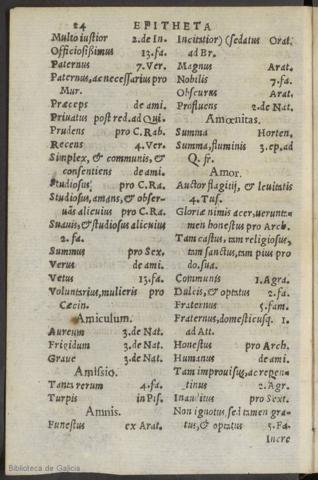 24 EPITHETA
Multo iustior 2.de In.
Officiosißimus 13.fa.
Paternus 7.Ver.
Paternus, ac necessarius pro
Mur.
Præceps de ami.
Priuatus post red.ad Qui.
Prudens pro C. Rab.
Recens 4.Ver.
Simplex, & communis, &
consentiens de ami.
Studiosus pro C.Ra.
Studiosus, amans, & obser-
uãs alicuius pro C.Ra.
Suauis, & studiosus alicuius
2.fa.
Summus pro Sex.
Verus de ami.
Vetus 13.fa.
Voluntarius, mulieris pro
Cæcin.
Amiculum.
Aureum 3.de Nat.
Frigidum 3.de Nat.
Graue 3.de Nat.
Amissio.
Tanta rerum 4.fa.
Turpis in Pis.
Amnis.
Funestus ex Arat.
Incitatior) (sedatus Orat.
ad Br.
Magnus Arat.
Nobilis 7.fa.
Obscurus Arat.
Profluens 2.de Nat.
Amœnitas.
Summa Horten.
Summa, fluminis 3.ep.ad
Q. fr.
Amor.
Auctor flagitij, & leuitatis
4.Tus.
Gloriæ nimis acer, uerunt=
men honestus pro Arch.
Tam castus, tam religiosus,
tam sanctus, tam pius pro
do.sua.
Communis 1.Agra.
Dulcis, & optatus 2.fa.
Fraternus 5.fam.
Fraternus, domesticusq. 1.
ad Att.
Honestus pro Arch.
Humanus de ami.
Tam improuisus, ac repen-
tinus 2.Agr.
Inauditus pro Sext.
Non ignotus, sed tamen gra-
tus, & optatus 5.Fa.
Incre
Biblioteca de Galicia